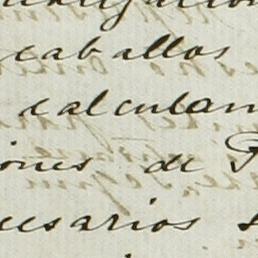 caballos
calculan
iones de P
cesarios s